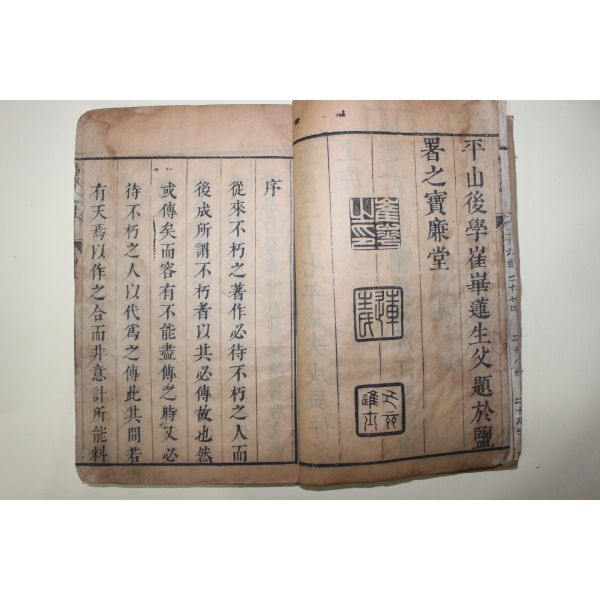 平山後學崔崋蓮生父題於鹽
署之寶廉堂
序
從來不朽之著作必待不朽之人而
後成所謂不朽者以其必傳故也然
或傳矣而容有不能盡傳之時又必
待不朽之人以代爲之傳此其間若
有天焉以作之合而非意計所能料